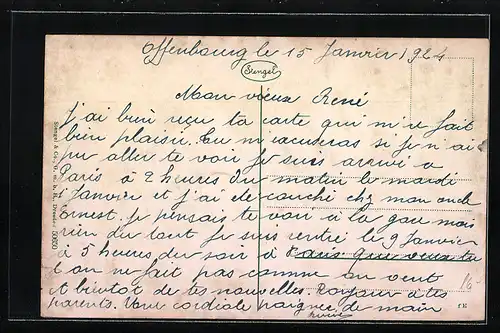 Offenbourg le 15 Janvier 1924
Stengel
Mon vieux René
J'ai bien reçu ta carte qui m'a fait
bien plaisir. Tu m'excuseras si je n'ai
pu aller te voir je suis arrivé a
Paris à 2 heures du matin le mardi
1 Janvier et j'ai été couché chez mon oncle
Ernest. Je pensais te voir à la gare mais
rien du tout Je suis rentré le 9 Janvier
à 5 heures du soir à
on ne fait pas comme on veut
et bientot de tes nouvelles. Bonjour à tes
parents. Une cordiale poignée de main
Stengel & Co., G. m. b. H., Dresden
16-